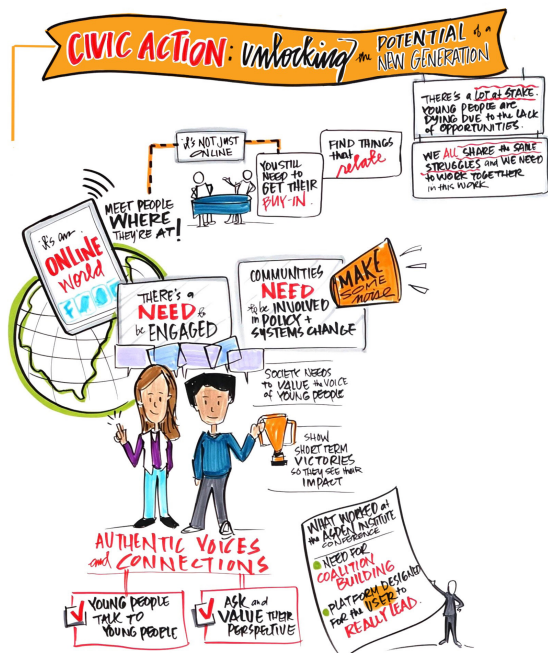 CIVIC ACTION: Unlocking the POTENTIAL of a
NEW GENERATION
THERE'S a LOT at STAKE.
YOUNG PEOPLE are
DYING DUE to the LACK
of OPPORTUNITIES.
WE ALL SHARE the SAME
STRUGGLES and WE NEED
to WORK TOGETHER
in this WORK
it's NOT JUST
ONLINE
FIND THINGS
that
relate
YOU STILL
NEED to
GET THEIR
BUY-IN.
MEET PEOPLE
WHERE
THEY'RE AT!
it's an
ONLINE
World
THERE'S a
NEED to
be ENGAGED
COMMUNITIES
NEED
to be INVOLVED
in POLICY +
SYSTEMS CHANGE
MAKE
SOME
noise
SOCIETY NEEDS
to VALUE the VOICE
of YOUNG PEOPLE
SHOW
SHORT TERM
VICTORIES
SO THEY SEE their
IMPACT
AUTHENTIC VOICES
and CONNECTIONS
YOUNG PEOPLE
TALK TO
YOUNG PEOPLE
ASK and
VALUE THEIR
PERSPECTIVE
WHAT WORKED at
the ASPEN INSTITUTE
CONFERENCE
NEED FOR
COALITION
BUILDING
PLATFORM DESIGNED
FOR the USER to
REALLY LEAD.